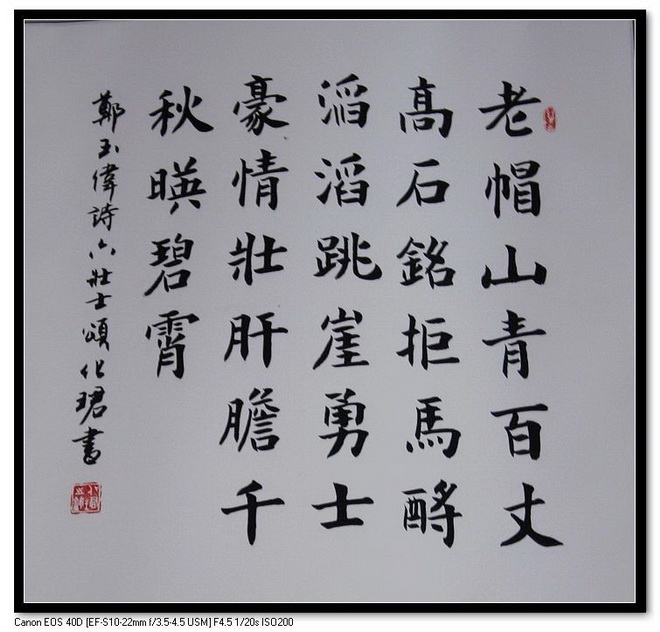 老帽山青百丈
髙石銘拒馬酹
滔滔跳崖勇士
豪情壯肝膽千
秋暎碧霄
鄭玉偉詩六壯士頌化珺書
Canon EOS 40D [EF-S10-22mm f/3.5-4.5 USM] F4.5 1/20s ISO200